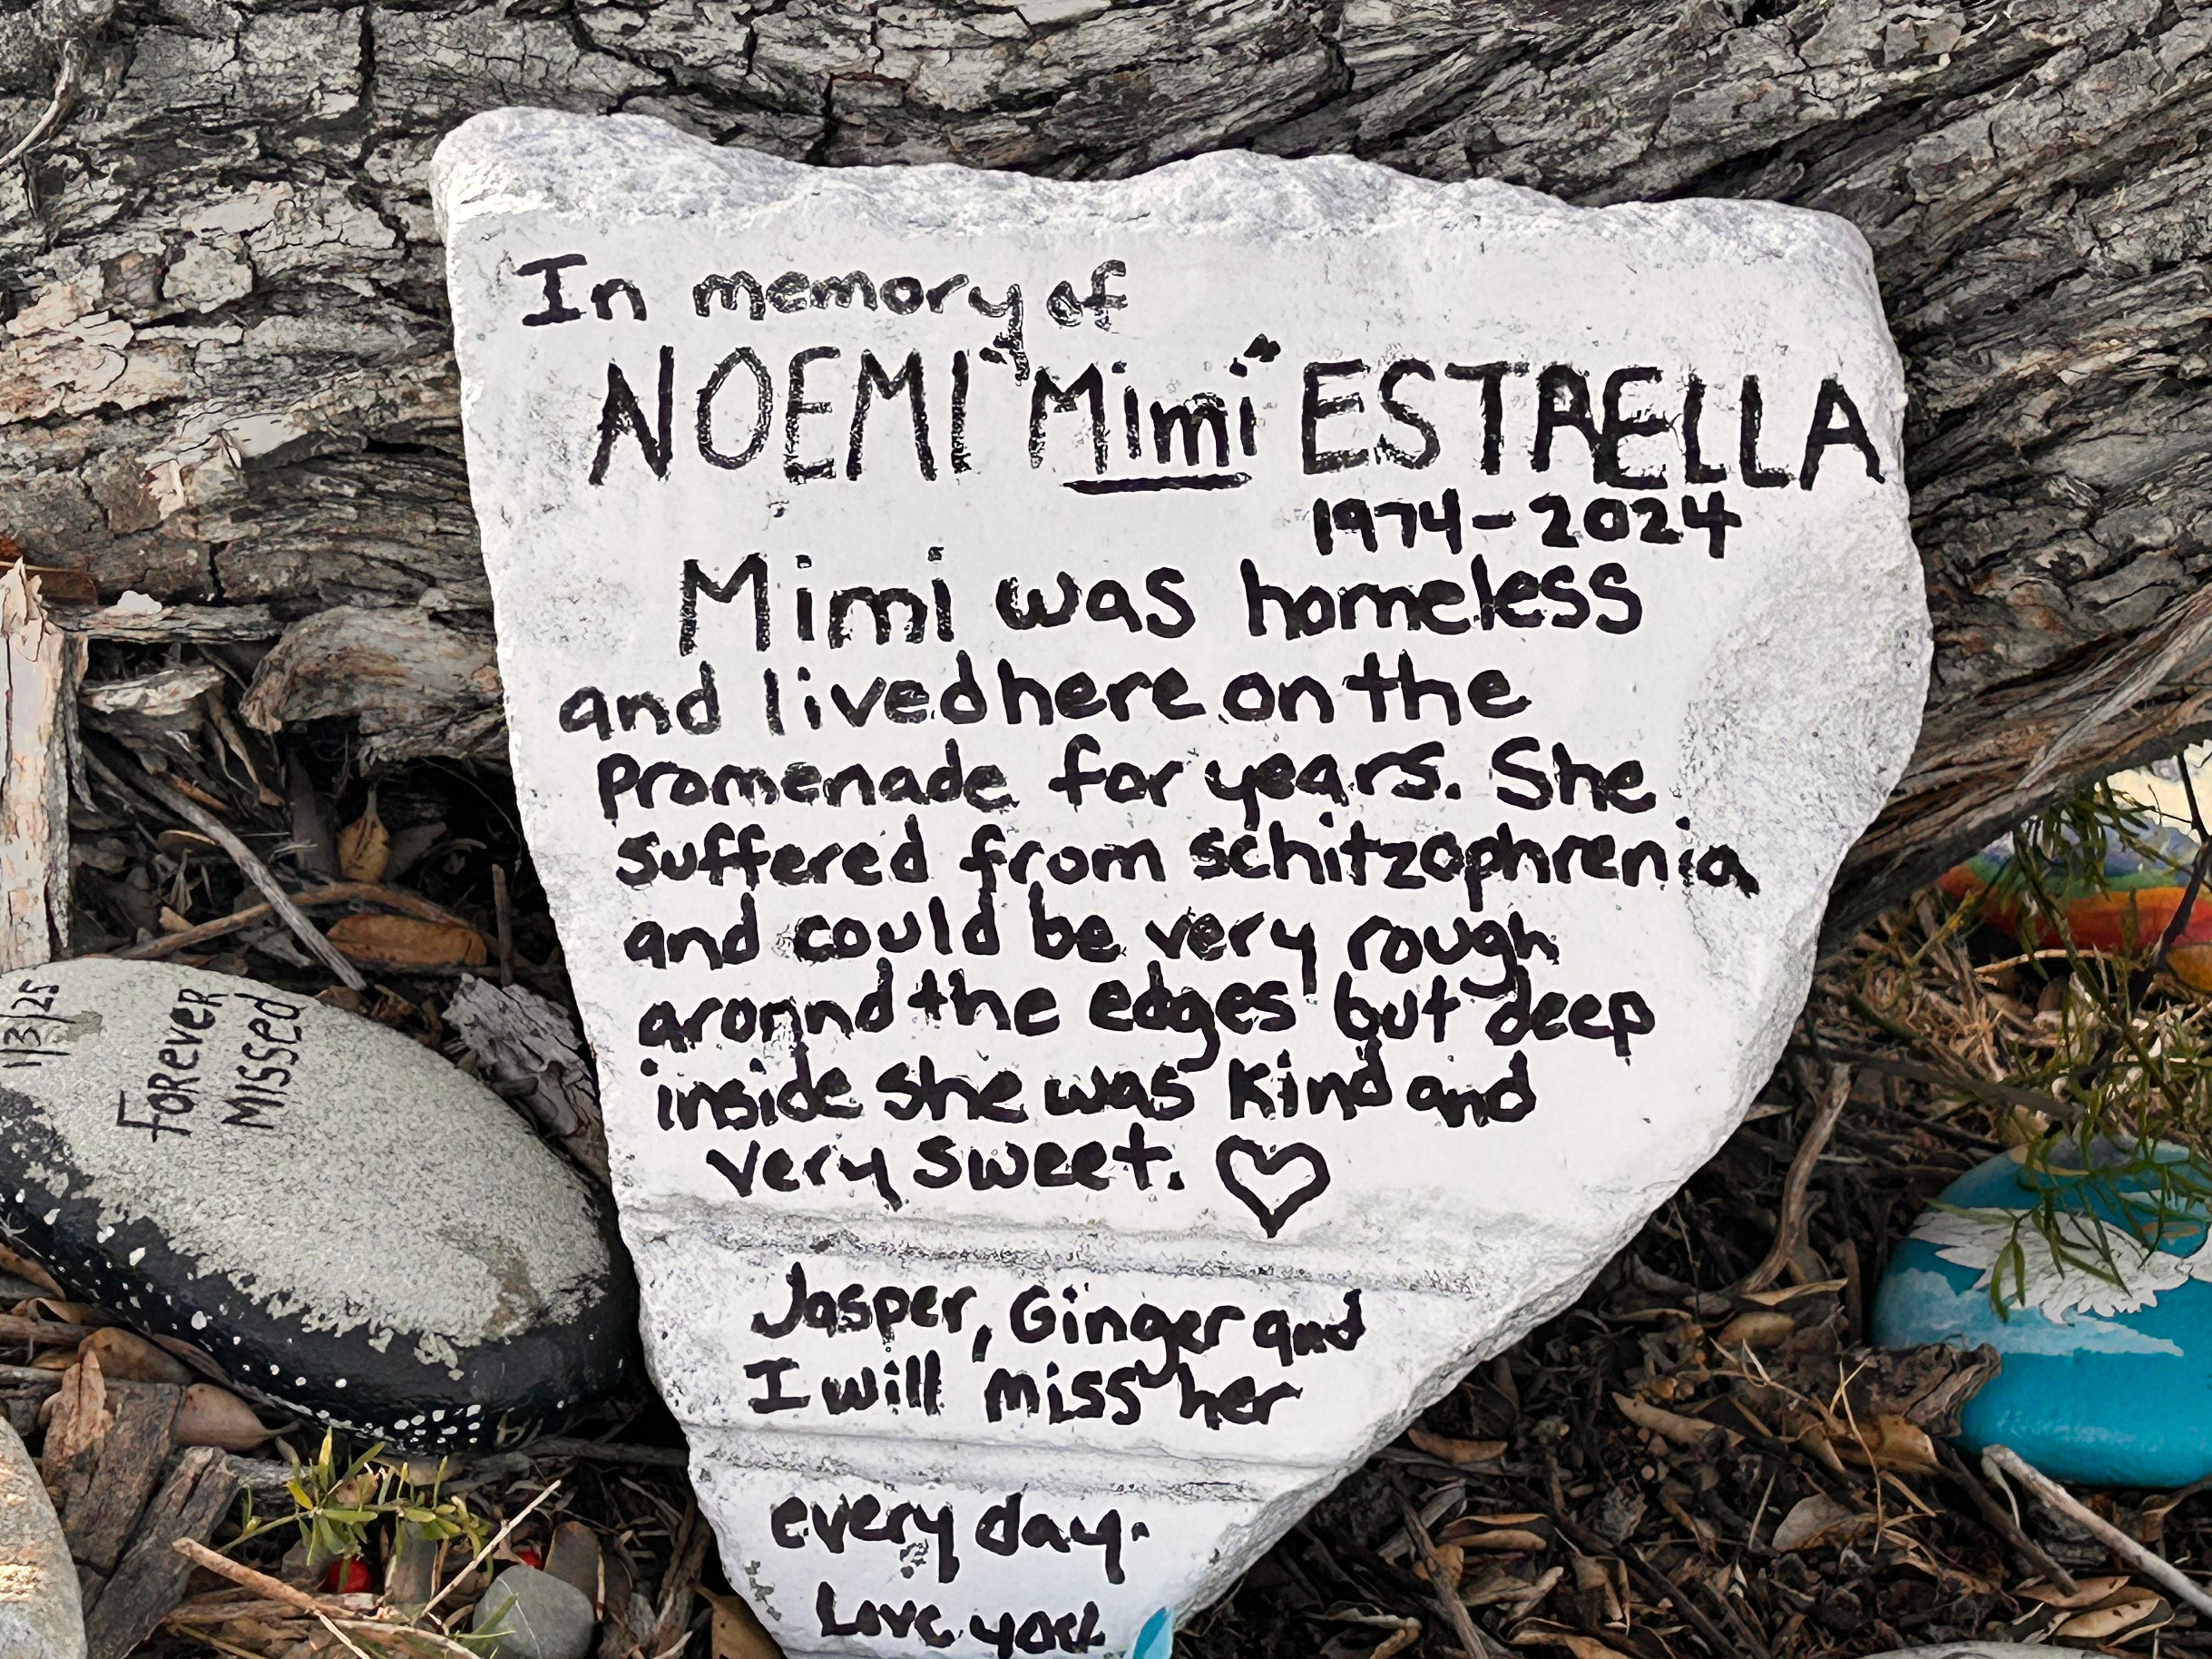 In memory of
NOEMI "Mimi" ESTRELLA
1974-2024
Mimi was homeless
and lived here on the
promenade for years. She
suffered from schitzophrenia
and could be very rough
aronnd the edges but deep
inside she was kind and
very sweet. ♡
Jasper, Ginger and
I will miss her
every day.
Love you
1/3/25
FOREVER
MISSED